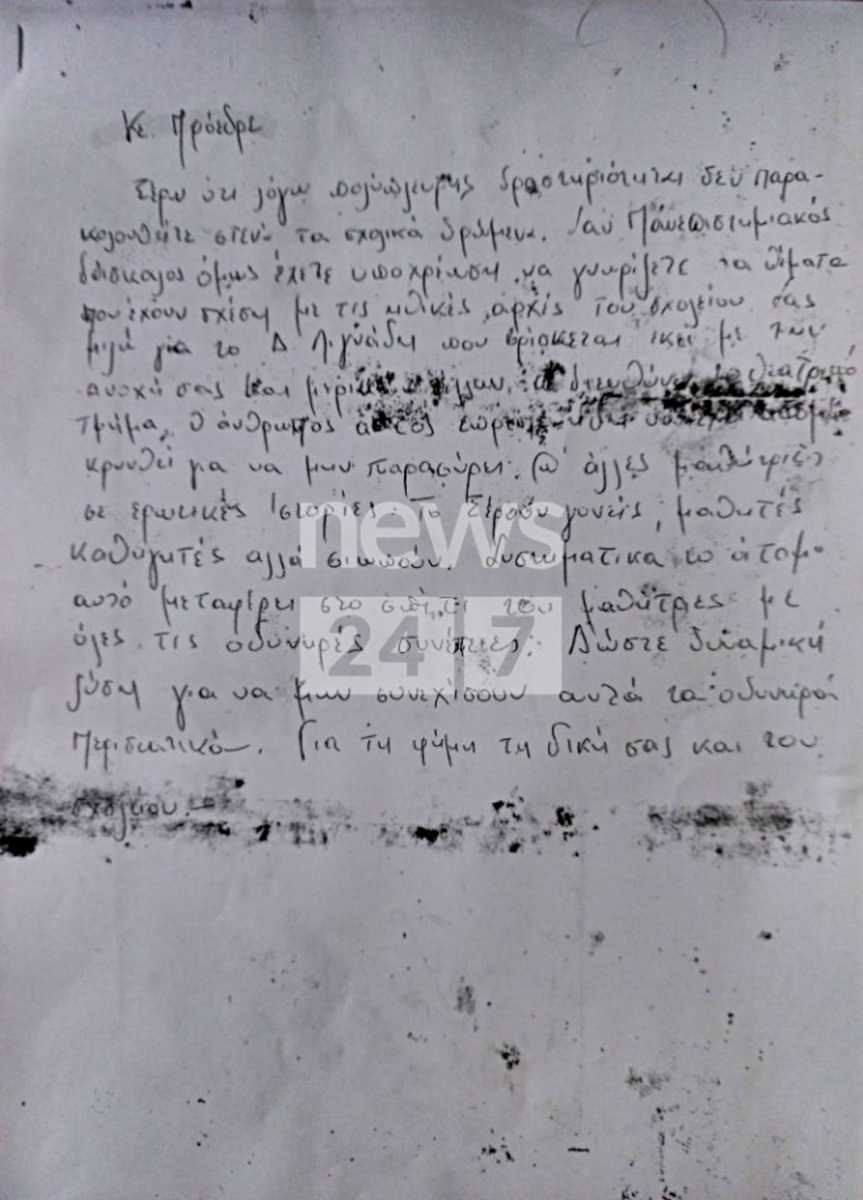 Κε Πρόεδρε
Ξέρω ότι λόγω πολύπλευρης δραστηριότητας δεν παρα-
κολουθείτε στενά τα σχολικά δρώμενα. Σαν Πανεπιστημιακός
δάσκαλος όμως έχετε υποχρέωση να γνωρίζετε τα θέματα
που έχουν σχέση με τις ηθικές αρχές του σχολείου σας
μιλώ για το Δ Λιγνάδη που βρίσκεται εκεί με την
ανοχή σας και μερικών άλλων, να διευθύνει το θεατρικό
τμήμα, ο άνθρωπος αυτός
κρυνθεί για να μην παρασύρει άλλες μαθήτριες
σε ερωτικές ιστορίες. Το ξέρουν γονείς, μαθητές
καθηγητές αλλά σιωπούν. Συστηματικα το άτομο
αυτό μεταφέρει στο σπίτι του μαθήτριες με
όλες τις οδυνηρές συνέπειες. Δώστε δυναμική
λύση για να μην συνεχίσουν αυτά τα οδυνηρά
περιστατικά. Για τη φήμη τη δική σας και του
σχολείου.-
news
24 7